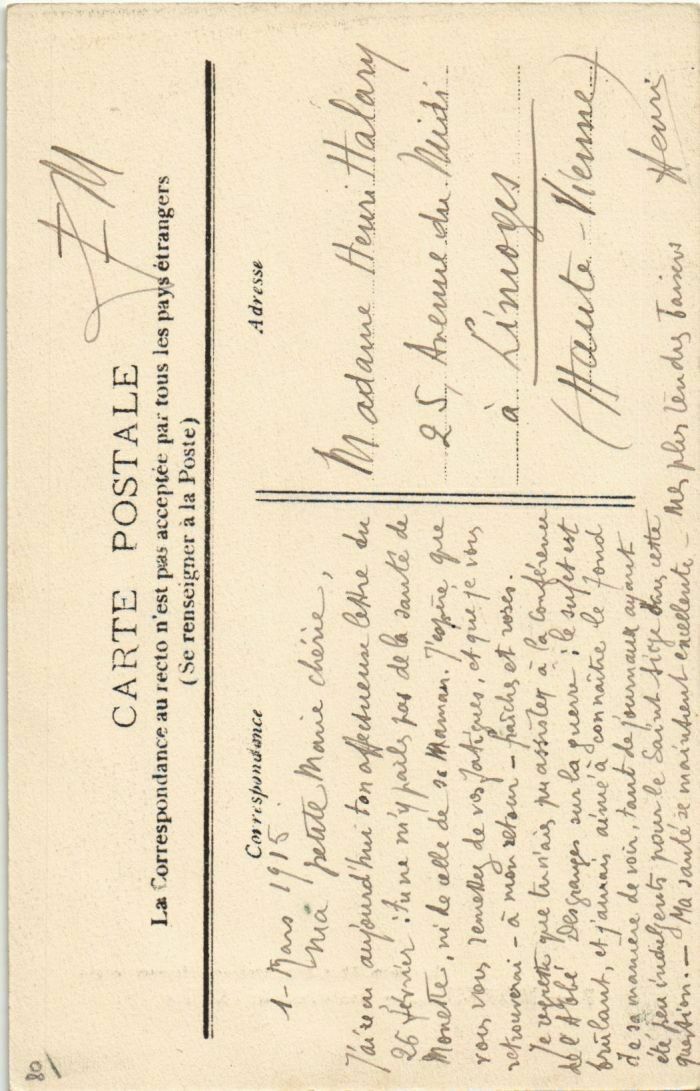 80
FM
CARTE POSTALE
La Correspondance au recto n'est pas acceptée par tous les pays étrangers
(Se renseigner à la Poste)
Correspondance
1 - Mars 1915
Ma petite Marie chérie,
J'ai reçu aujourd'hui ton affectueuse lettre du
26 février : tu ne m'y parles pas de la santé de
Monette, ni de celle de sa Maman. J'espère que
vous vous remettez de vos fatigues, et que je vous
retrouverai - à mon retour - fraîches et roses.
Je regrette que tu n'aies pu assister à la conférence
de l'Abbé Desgranges sur la guerre : le sujet est
brûlant, et j'aurais aimé à connaître le fond
de sa manière de voir, tant de journaux ayant
été peu indulgents pour le Saint Siège dans cette
question. — Ma santé se maintient excellente. — Mes plus tendres baisers
Henri
Adresse
Madame Henri Halary
25, Avenue du Midi
à Limoges
(Haute-Vienne)